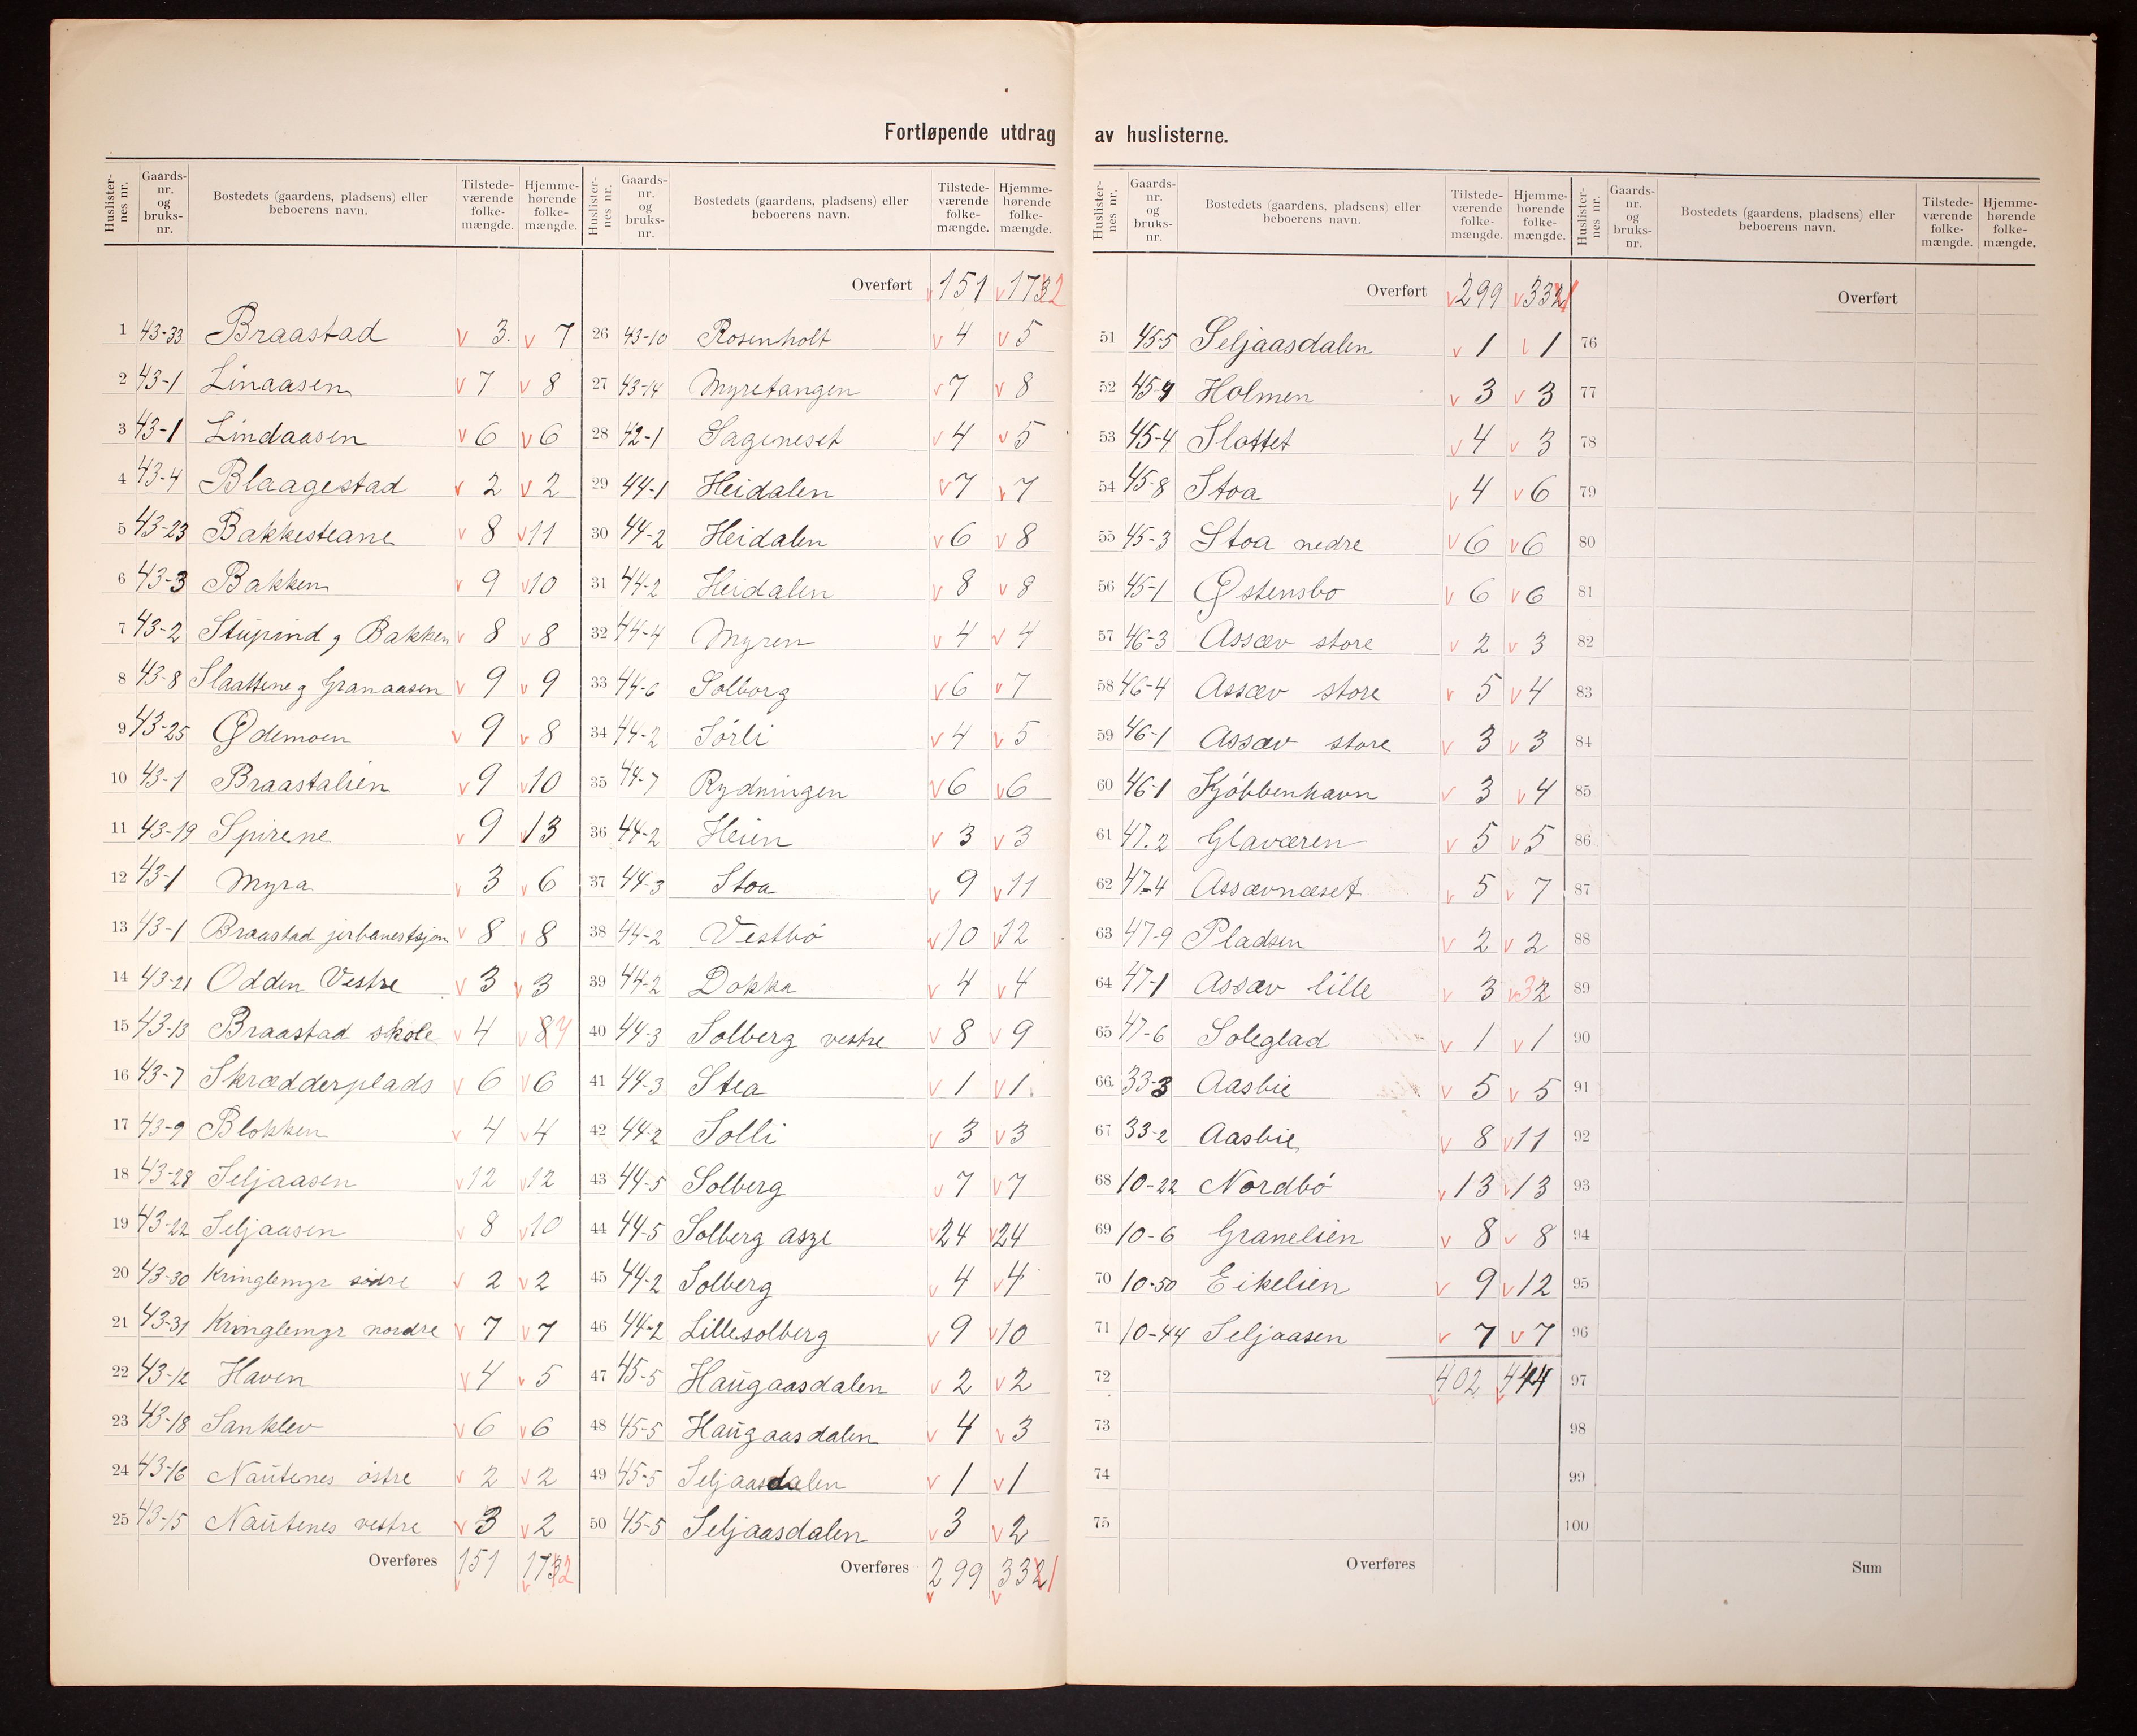 Fortløpende utdrag av huslisterne.
Huslisternes nr. Gaards-nr. og bruks-nr. Bostedets (gaardens, pladsens) eller beboerens navn. Tilstede-værende folke-mængde. Hjemme-hørende folke-mængde.
1 43-33 Braastad 3. 7
2 43-1 Linaasen 7 8
3 43-1 Lindaasen 6 6
4 43-4 Blaagestad 2 2
5 43-23 Bakkesteane 8 11
6 43-3 Bakken 9 10
7 43-2 Stupind og Bakken 8 8
8 43-8 Slaattene og Granaasen 9 9
9 43-25 Ødemoen 9 8
10 43-1 Braastalien 9 10
11 43-19 Spirene 9 13
12 43-1 Myra 3 6
13 43-1 Braastad jerbanestsjon 8 8
14 43-21 Odden Vestre 3 3
15 43-13 Braastad skole 4 8 7
16 43-7 Skrædderplads 6 6
17 43-9 Blokken 4 4
18 43-28 Seljaasen 12 12
19 43-22 Seljaasen 8 10
20 43-30 Kringlemyr södre 2 2
21 43-31 Kringlemyr nordre 7 7
22 43-12 Haven 4 5
23 43-18 Sanklev 6 6
24 43-16 Nautenes östre 2 2
25 43-15 Nautenes vestre 3 2
Overføres 151 173 2
Huslisternes nr. Gaards-nr. og bruks-nr. Bostedets (gaardens, pladsens) eller beboerens navn. Tilstede-værende folke-mængde. Hjemme-hørende folke-mængde.
Overført 151 173 2
26 43-10 Rosenholt 4 5
27 43-14 Myretangen 7 8
28 42-1 Sageneset 4 5
29 44-1 Heidalen 7 7
30 44-2 Heidalen 6 8
31 44-2 Heidalen 8 8
32 44-4 Myren 4 4
33 44-6 Solborg 6 7
34 44-2 Sörli 4 5
35 44-7 Rydningen 6 6
36 44-2 Heien 3 3
37 44-3 Stoa 9 11
38 44-2 Vestbö 10 12
39 44-2 Dokka 4 4
40 44-3 Solberg vestre 8 9
41 44-3 Stea 1 1
42 44-2 Solli 3 3
43 44-5 Solberg 7 7
44 44-5 Solberg asyl 24 24
45 44-2 Solberg 4 4
46 44-2 Lillesolberg 9 10
47 45-5 Haugaasdalen 2 2
48 45-5 Haugaasdalen 4 3
49 45-5 Seljaasdalen 1 1
50 45-5 Seljaasdalen 3 2
Overføres 299 332 1
Huslisternes nr. Gaards-nr. og bruks-nr. Bostedets (gaardens, pladsens) eller beboerens navn. Tilstede-værende folke-mængde. Hjemme-hørende folke-mængde.
Overført 299 332 1
51 45-5 Seljaasdalen 1 1
52 45-9 Holmen 3 3
53 45-4 Slottet 4 3
54 45-8 Stoa 4 6
55 45-3 Stoa nedre 6 6
56 45-1 Østensbo 6 6
57 46-3 Assæv store 2 3
58 46-4 Assæv store 5 4
59 46-1 Assæv store 3 3
60 46-1 Kjöbbenhavn 3 4
61 47.2 Glaværen 5 5
62 47-4 Assævnæset 5 7
63 47-9 Pladsen 2 2
64 47-1 Assæv lille 3 3 2
65 47-6 Soleglad 1 1
66 33-3 Aasbie 5 5
67 33-2 Aasbie 8 11
68 10-22 Nordbö 13 13
69 10-6 Granelien 8 8
70 10-50 Eikelien 9 12
71 10-44 Seljaasen 7 7
72 402 444
73
74
75
Overføres
Huslisternes nr. Gaards-nr. og bruks-nr. Bostedets (gaardens, pladsens) eller beboerens navn. Tilstede-værende folke-mængde. Hjemme-hørende folke-mængde.
Overført
76
77
78
79
80
81
82
83
84
85
86
87
88
89
90
91
92
93
94
95
96
97
98
99
100
Sum